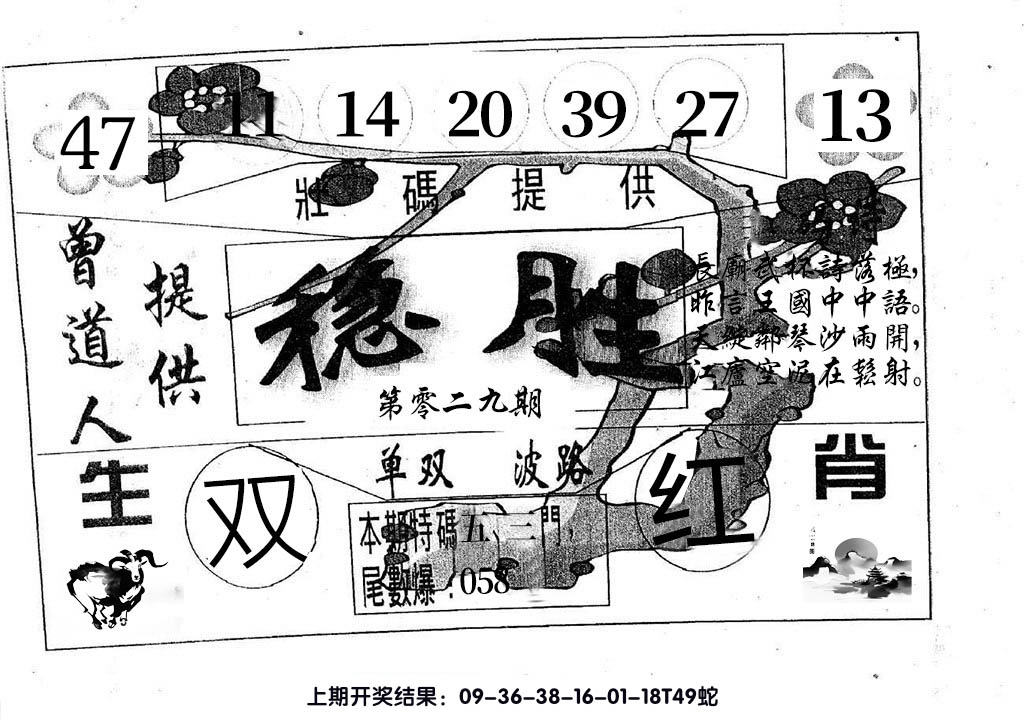 47 11 14 20 39 27 13
壯碼提供
曾道人
提供
稳胜
第零二九期
長廟武杯詩落極，
昨信王國中中語。
天縱鄰琴沙雨開，
江廬空泥在鬆射。
单双 波路
生 双 红 肖
本期特碼五、三門，
尾數爆：058
上期开奖结果：09-36-38-16-01-18T49蛇